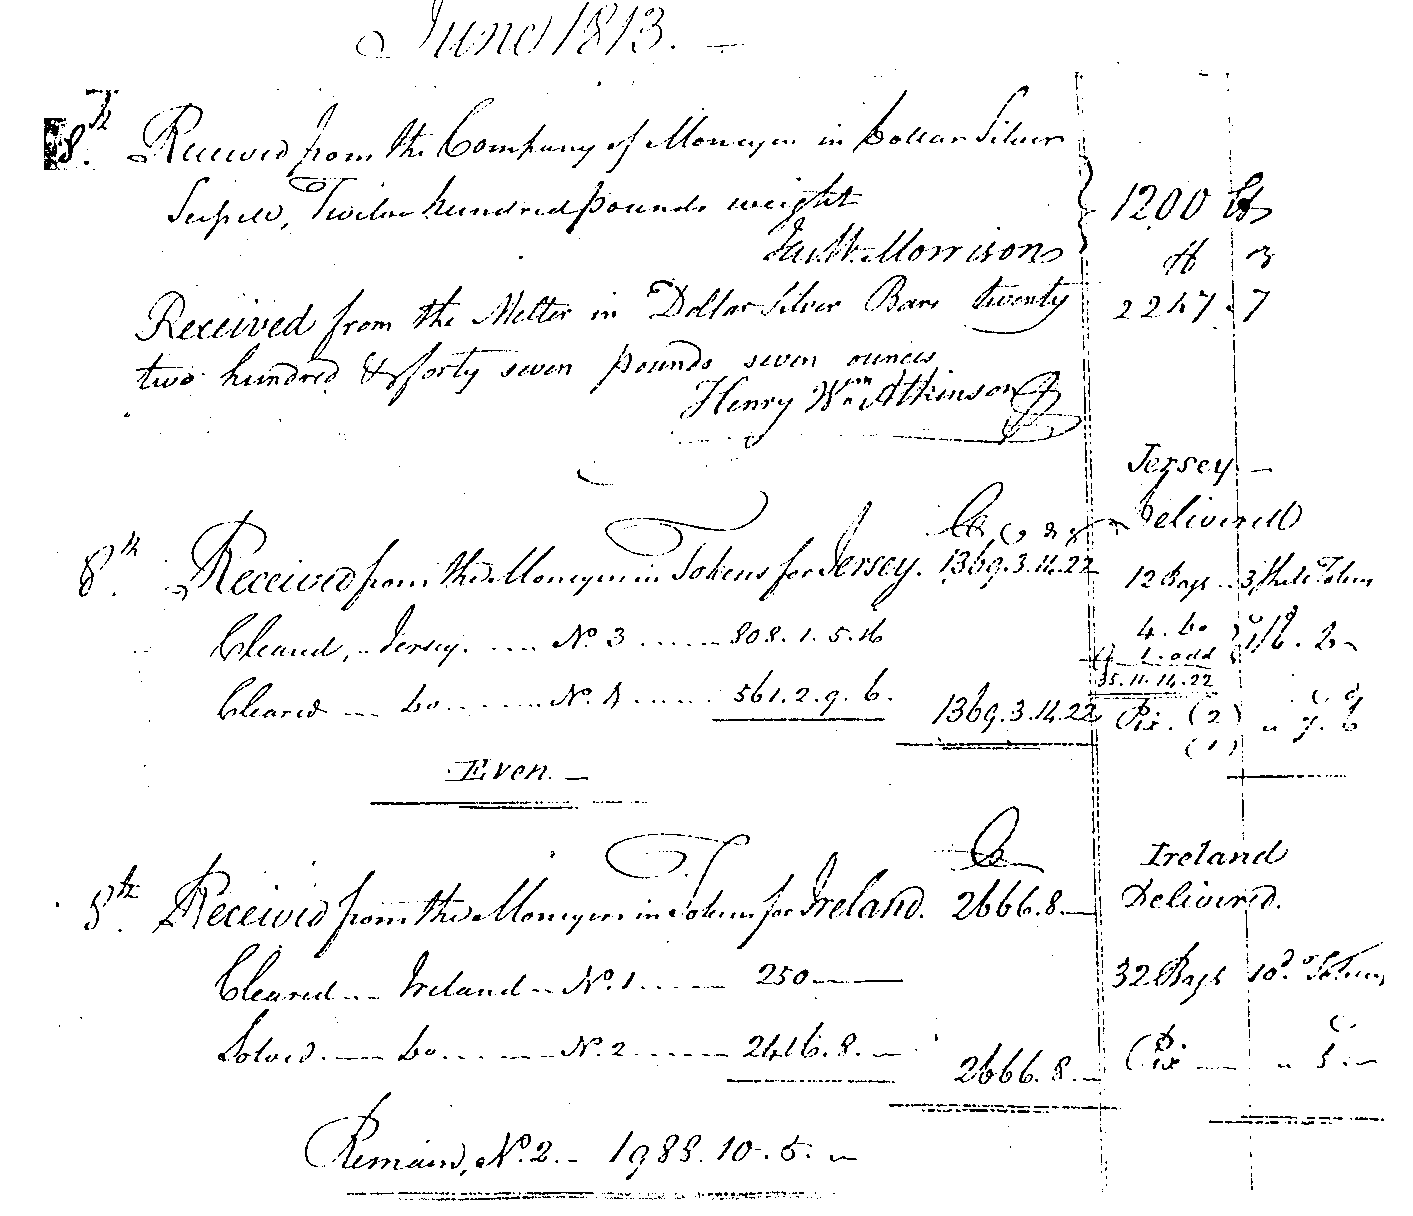 June 1813. —
8th Received from the Company of Moneyers in Dollar Silver
Scissel, Twelve hundred pounds weight 1200 lbs
Jas Wm Morrison
Received from the Melter in Dollar Silver Bars twenty 2247 . 7
two hundred & forty seven pounds seven ounces
Henry Wm Atkinson
Jersey —
Delivered
8th Received from the Moneyers in Tokens for Jersey. 1369.3.14.22 12 Bags .. 3 Shils Tokens
Cleared, .. Jersey. .... No 3 ...... 808.1.5.16 4. Do 1/6.
1. odd
35.11.14.22
Cleared ... Do ...... No. 4 ...... 561.2.9.6. 1369.3.14.22 Pix. (2) " 7. 6
(1)
Even. —
Ireland
8th Received from the Moneyers in Tokens for Ireland. 2666.8. — Delivered.
Cleared ... Ireland .. No. 1 ...... 250 — 32 Bags 10d. Tokens
Solved. ... Do ...... No. 2 ...... 2416.8. — 2666.8. — Pix — " 5. —
Remains, No. 2. .. 1988.10.5. —